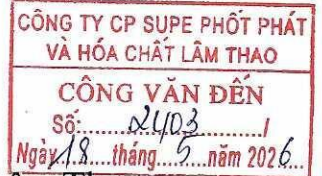 CÔNG TY CP SUPE PHỐT PHÁT
VÀ HÓA CHẤT LÂM THAO
CÔNG VĂN ĐẾN
Số:.......2403......./
Ngày.18....tháng..5...năm 2026..